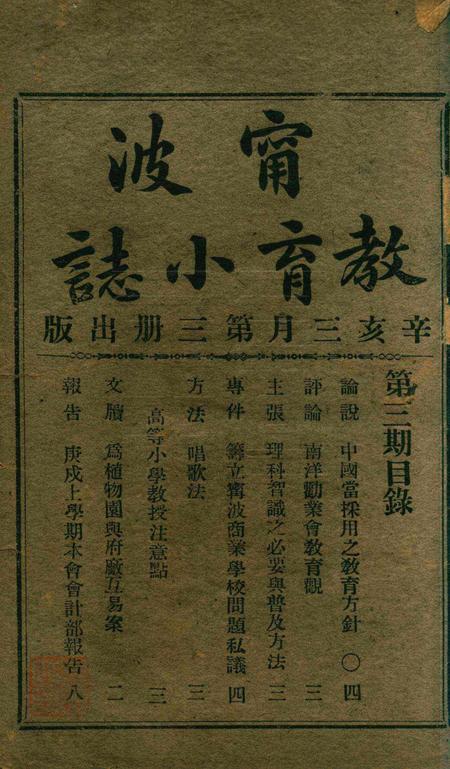 甯波
教育小誌
辛亥三月第三册出版
第三期目錄
論說 中國當採用之教育方針 〇四
評論 南洋勸業會教育觀 三
主張 理科智識之必要與普及方法 三
專件 籌立甯波商業學校問題私議 四
方法 唱歌法 三
高等小學教授注意點 三
文牘 爲植物園與府廠互易案 二
報告 庚戌上學期本會會計部報告 八